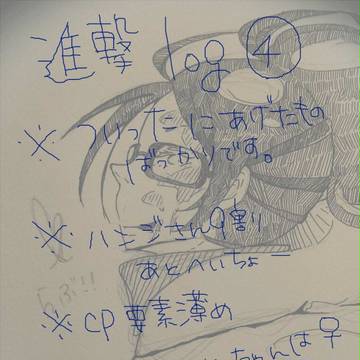 進撃 log ④
※ ついったにあげたもの
ばっかりです。
※ ハンジさん9割
あとへいちょー
らぶ!!
※ CP要素薄め
ちゃんは♀